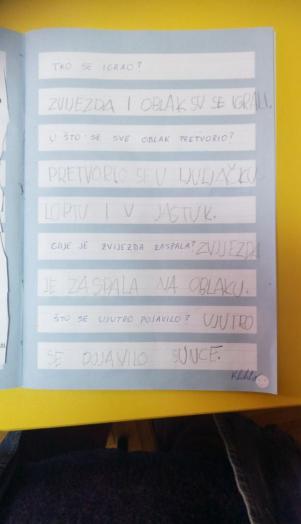 TKO SE IGRAO?
ZVIJEZDA I OBLAK SU SE IGRALI.
U ŠTO SE SVE OBLAK PRETVORIO?
PRETVORIO SE U LJULJAČKU
LOPTU I U JASTUK.
GDJE JE ZVIJEZDA ZASPALA? ZVIJEZDA
JE ZASPALA NA OBLAKU.
ŠTO SE UJUTRO POJAVILO? UJUTRO
SE POJAVILO SUNCE.